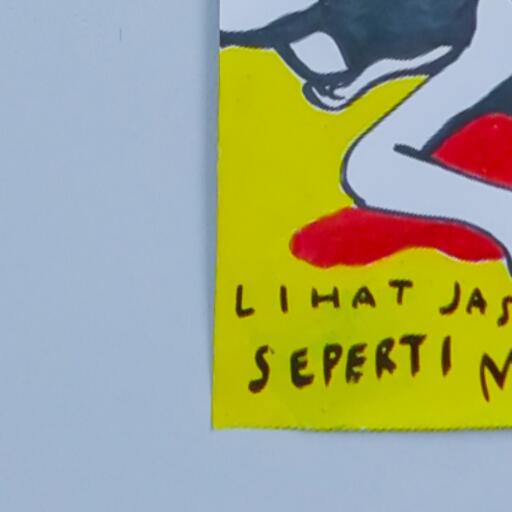 LIHAT JAS
SEPERTI